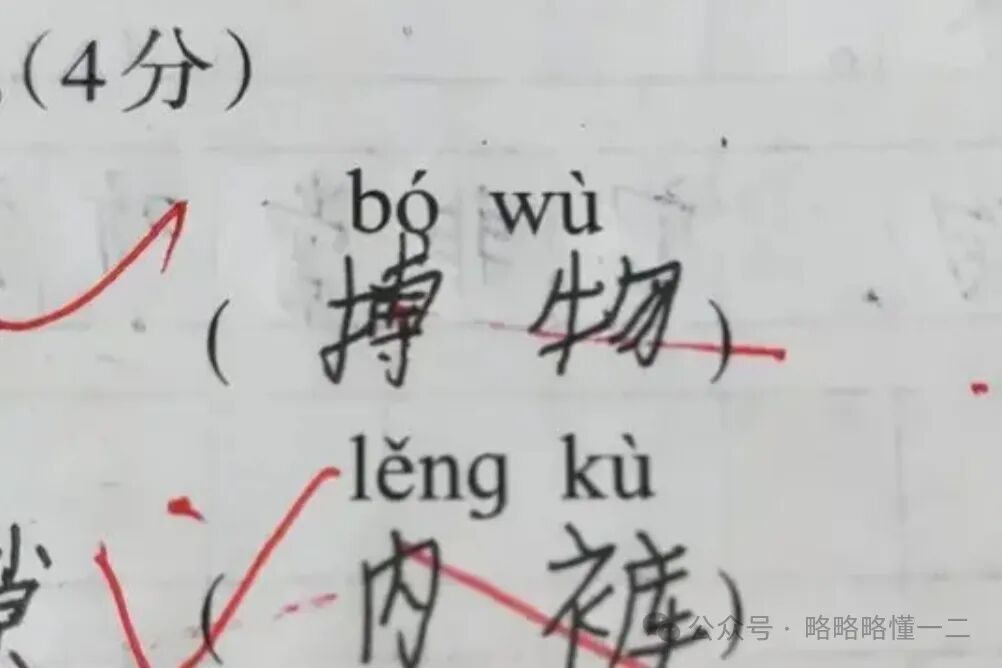 (4分)
bó wù
(搏物)
lěng kù
(内裤)
公众号·略略略懂一二